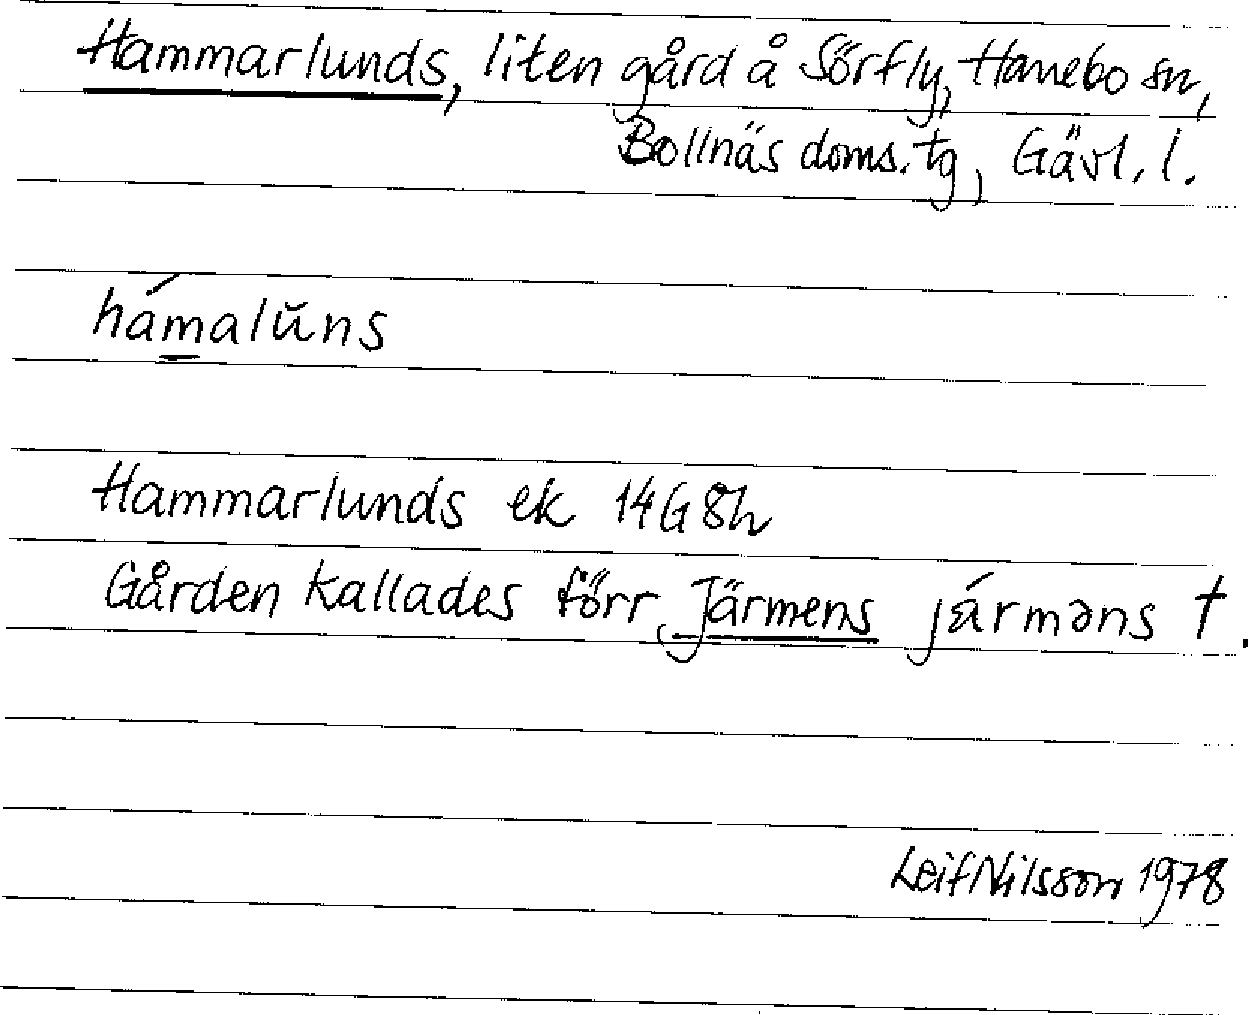 Hammarlunds, liten gård å Sörfly, Hanebo sn,
Bollnäs doms. tg, Gävl. l.
hámalŭns
Hammarlunds ek 14G 8h
Gården kallades förr Järmens jármǝns †.
Leif Nilsson 1978